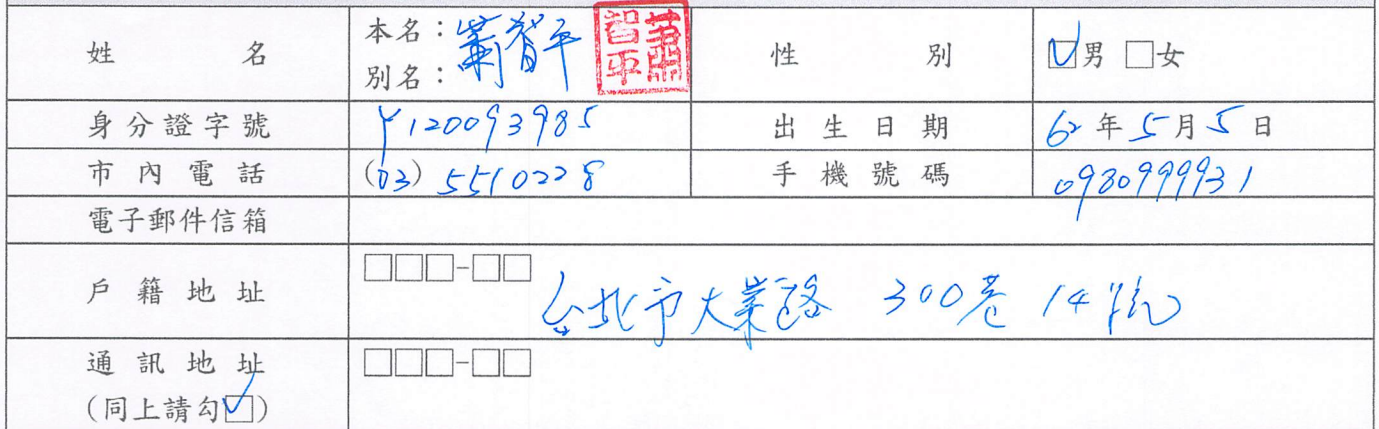 姓名 本名：蕭智平 蕭智平 性別 ☑男 □女
別名：
身分證字號 Y120093985 出生日期 62年5月5日
市內電話 (03) 5510228 手機號碼 0980999931
電子郵件信箱
戶籍地址 □□□-□□ 台北市大業路 300巷 14號
通訊地址 □□□-□□
(同上請勾☑)